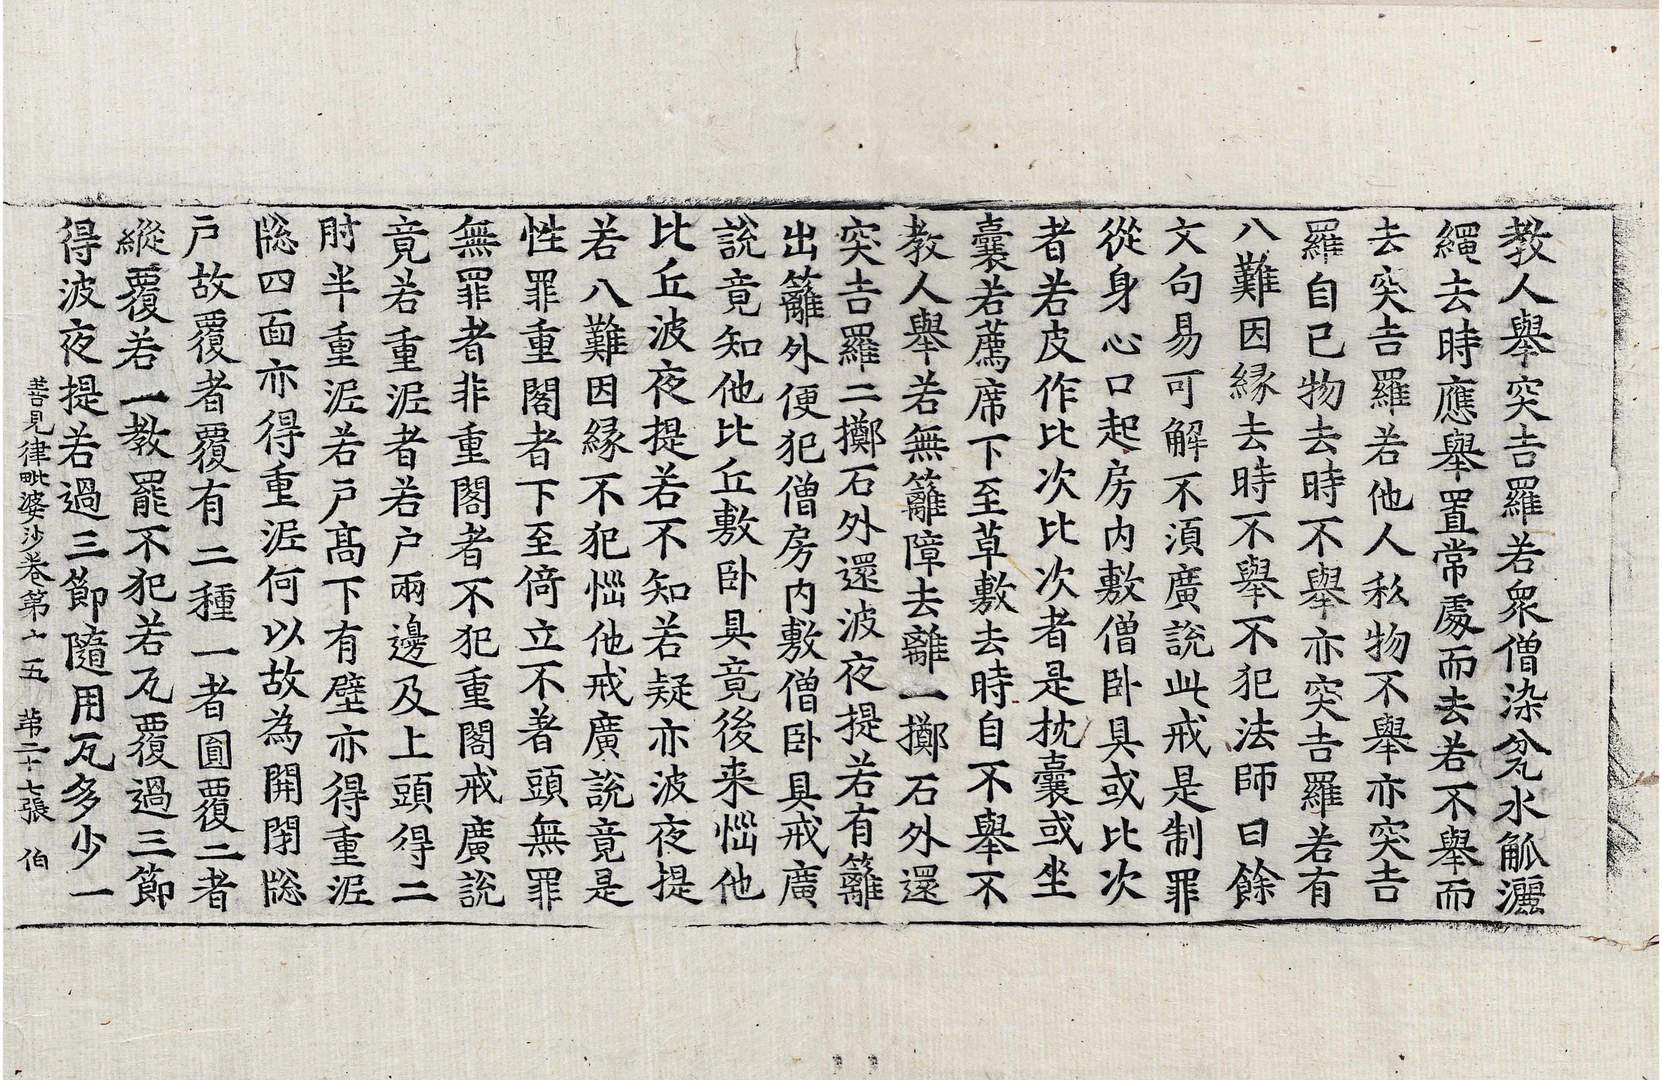 教人舉突吉羅若衆僧染瓫水觚灑
繩去時應舉置常處而去若不舉而
去突吉羅若他人私物不舉亦突吉
羅自已物去時不舉亦突吉羅若有
八難因縁去時不舉不犯法師曰餘
文句易可解不湏廣說此戒是制罪
從身心口起房內敷僧卧具或比次
者若皮作比次比次者是枕囊或坐
囊若薦席下至草敷去時自不舉不
教人舉若無籬障去離一擲石外還
突吉羅二擲石外還波夜提若有籬
出籬外便犯僧房內敷僧卧具戒廣
說竟知他比丘敷卧具竟後来惱他
比丘波夜提若不知若疑亦波夜提
若八難因縁不犯惱他戒廣說竟是
性罪重閣者下至倚立不著頭無罪
無罪者非重閣者不犯重閣戒廣說
竟若重泥者若户兩邊及上頭得二
肘半重泥若户髙下有壁亦得重泥
䆫四面亦得重泥何以故為開閉䆫
户故覆者覆有二種一者圎覆二者
縱覆若一教罷不犯若瓦覆過三節
得波夜提若過三節隨用瓦多少一
善見律毗婆沙卷第十五　第二十七張　伯